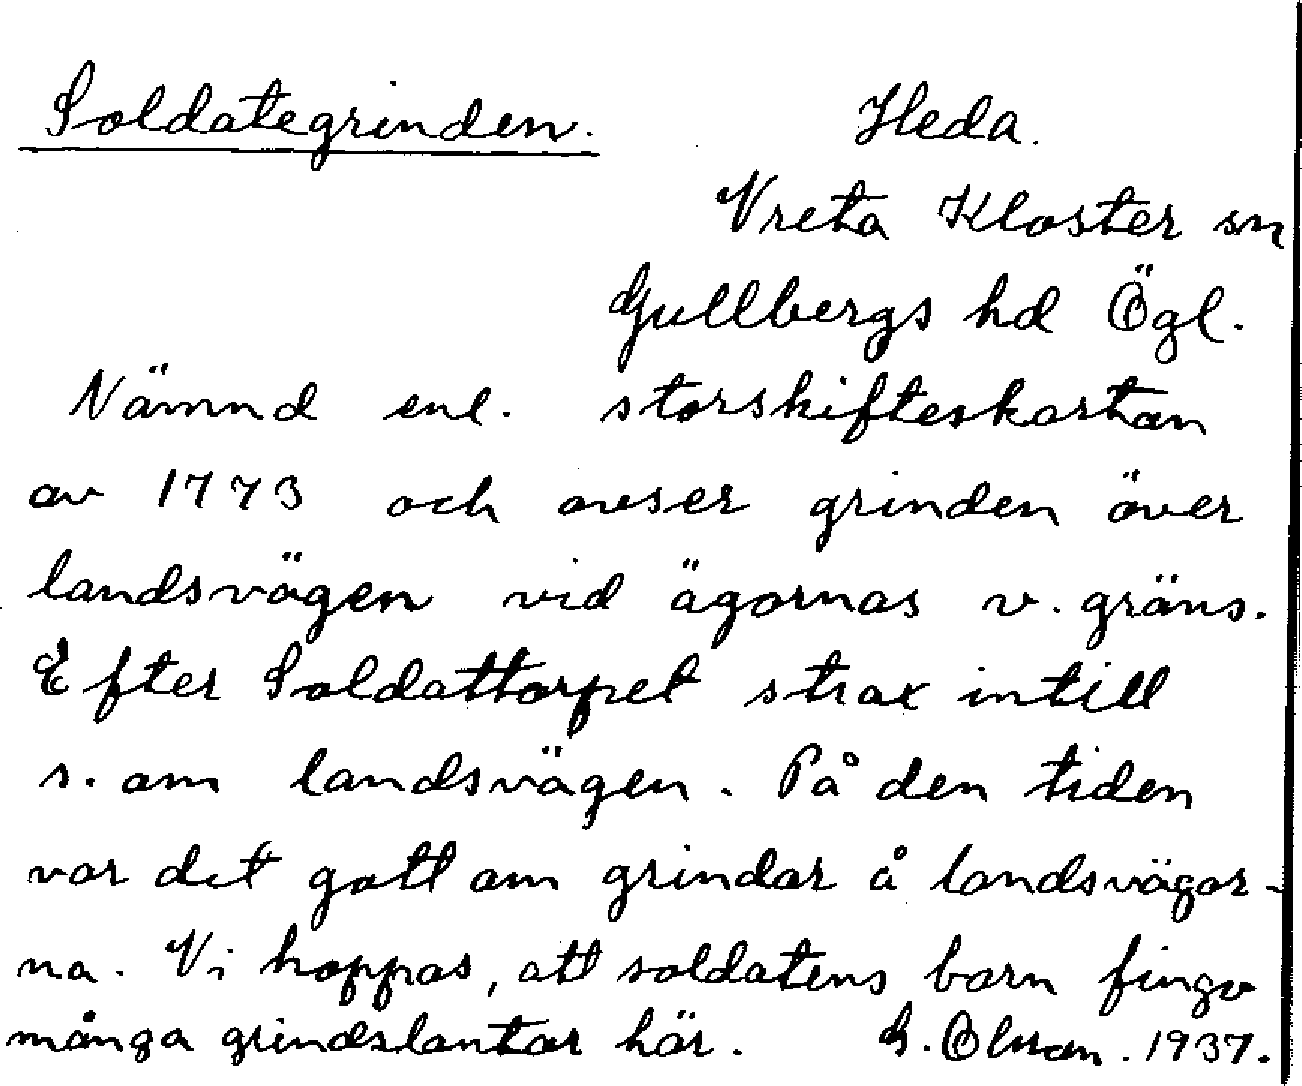 Soldategrinden. Heda.
Vreta Kloster sn
Gullbergs hd Ögl.
Nämnd enl. storskifteskartan
av 1773 och avser grinden över
landsvägen vid ägornas v. gräns.
Efter Soldattorpet strax intill
s. om landsvägen. På den tiden
var det gott om grindar å landsvägar-
na. Vi hoppas, att soldatens barn fingo
många grindslantar här. G. Olsson. 1937.